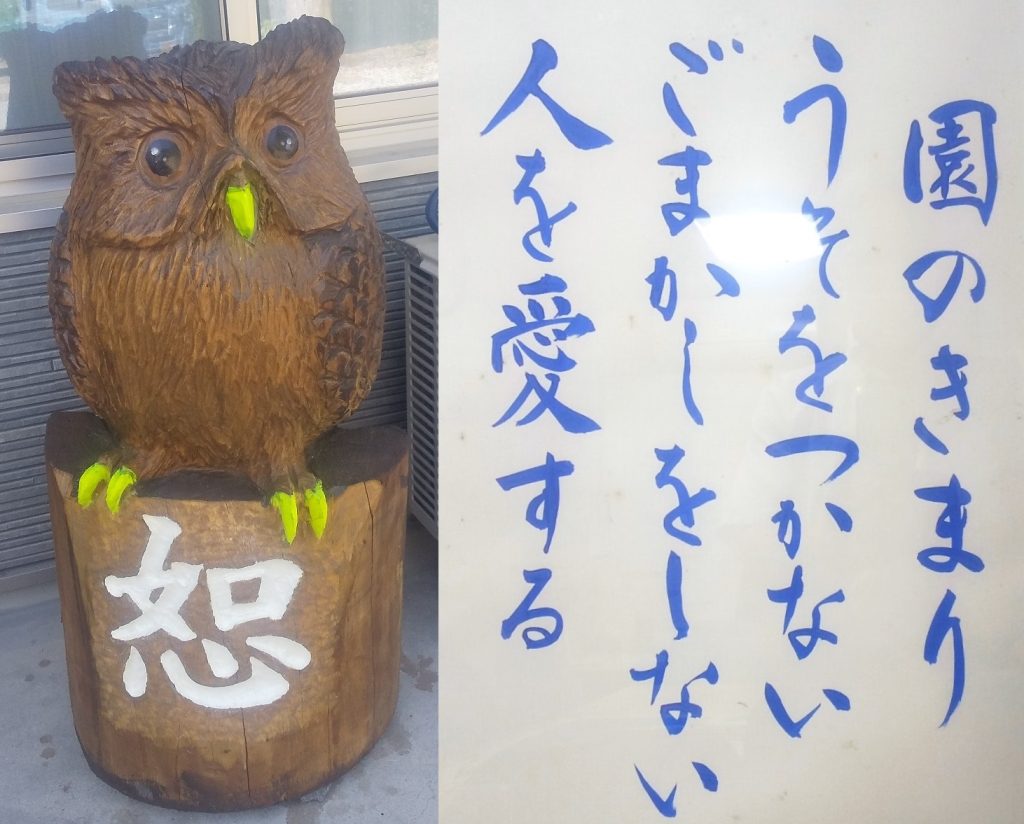 恕
園のきまり
うそをつかない
ごまかしをしない
人を愛する